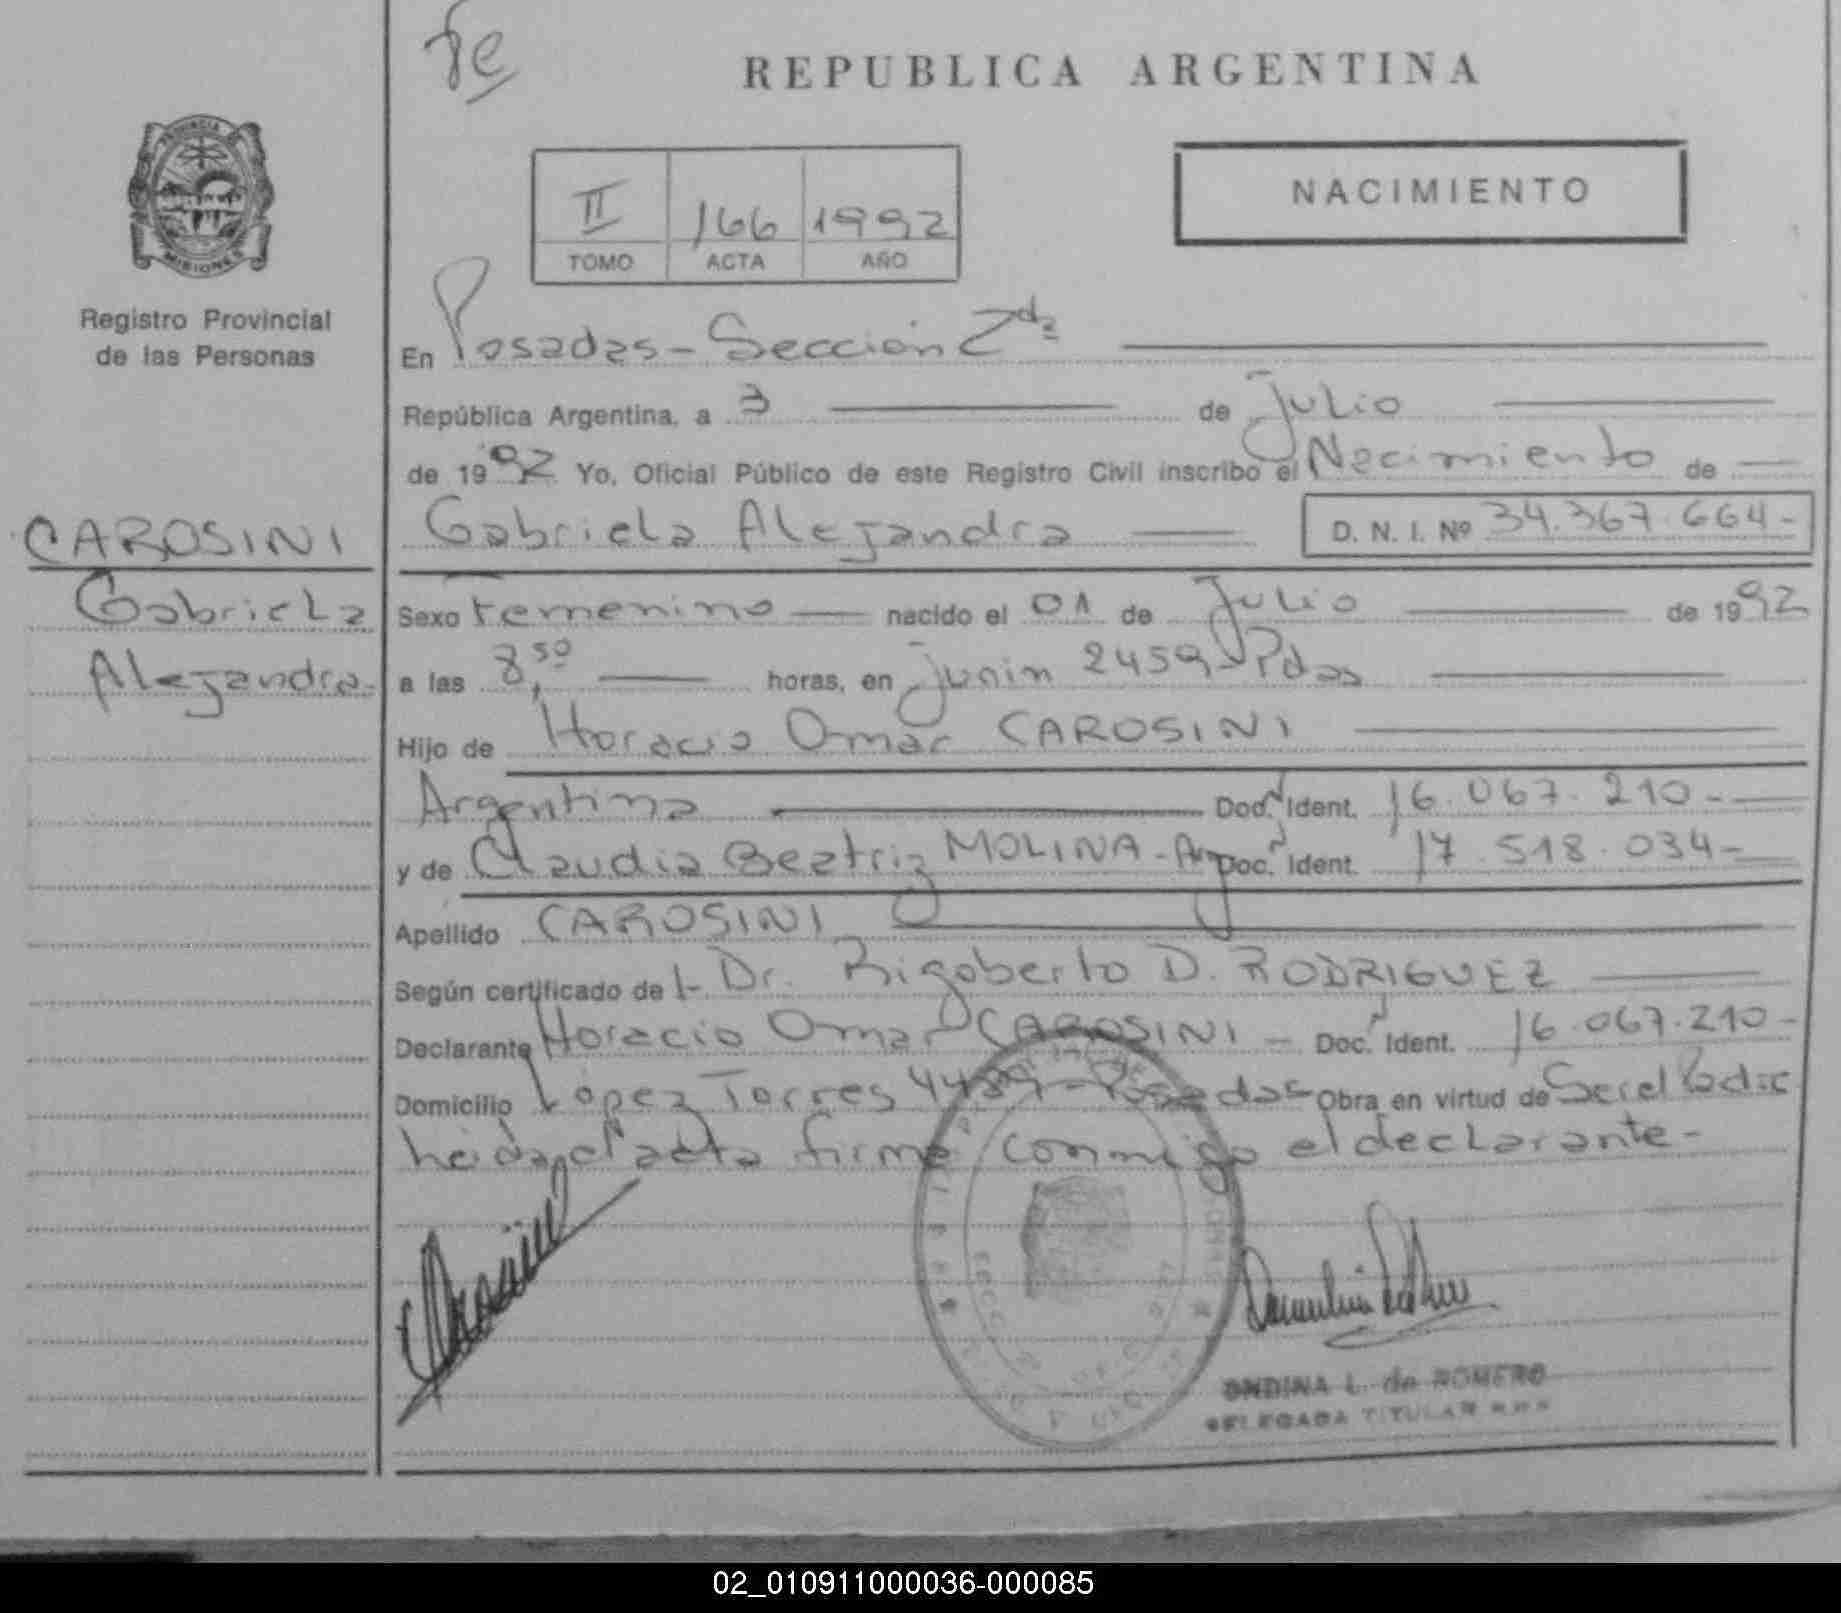 fe
REPUBLICA ARGENTINA
PROVINCIA
MISIONES
Registro Provincial
de las Personas
II 166 1992
TOMO ACTA AÑO
NACIMIENTO
En Posadas - Sección 2da
República Argentina, a 3 de Julio
de 1992 Yo, Oficial Público de este Registro Civil inscribo el Nacimiento de
CAROSINI
Gabriela Alejandra D. N. I. Nº 34.367.664-
Gabriela
Alejandra-
Sexo Femenino nacido el 01 de Julio de 1992
a las 8,50 horas, en Junin 2459 - Pdas
Hijo de Horacio Omar CAROSINI
Argentina Doc. Ident. 16.067.210-
y de Claudia Beatriz MOLINA - Arg Doc. Ident. 17.518.034-
Apellido CAROSINI
Según certificado de l Dr. Rigoberto D. RODRIGUEZ
Declarante Horacio Omar CAROSINI - Doc. Ident. 16.067.210-
Domicilio López Torres - Posadas Obra en virtud de Ser el
leida el acta firma conmigo el declarante-
Carosini
ONDINA L. de ROMERO
DELEGADA TITULAR
02_010911000036-000085